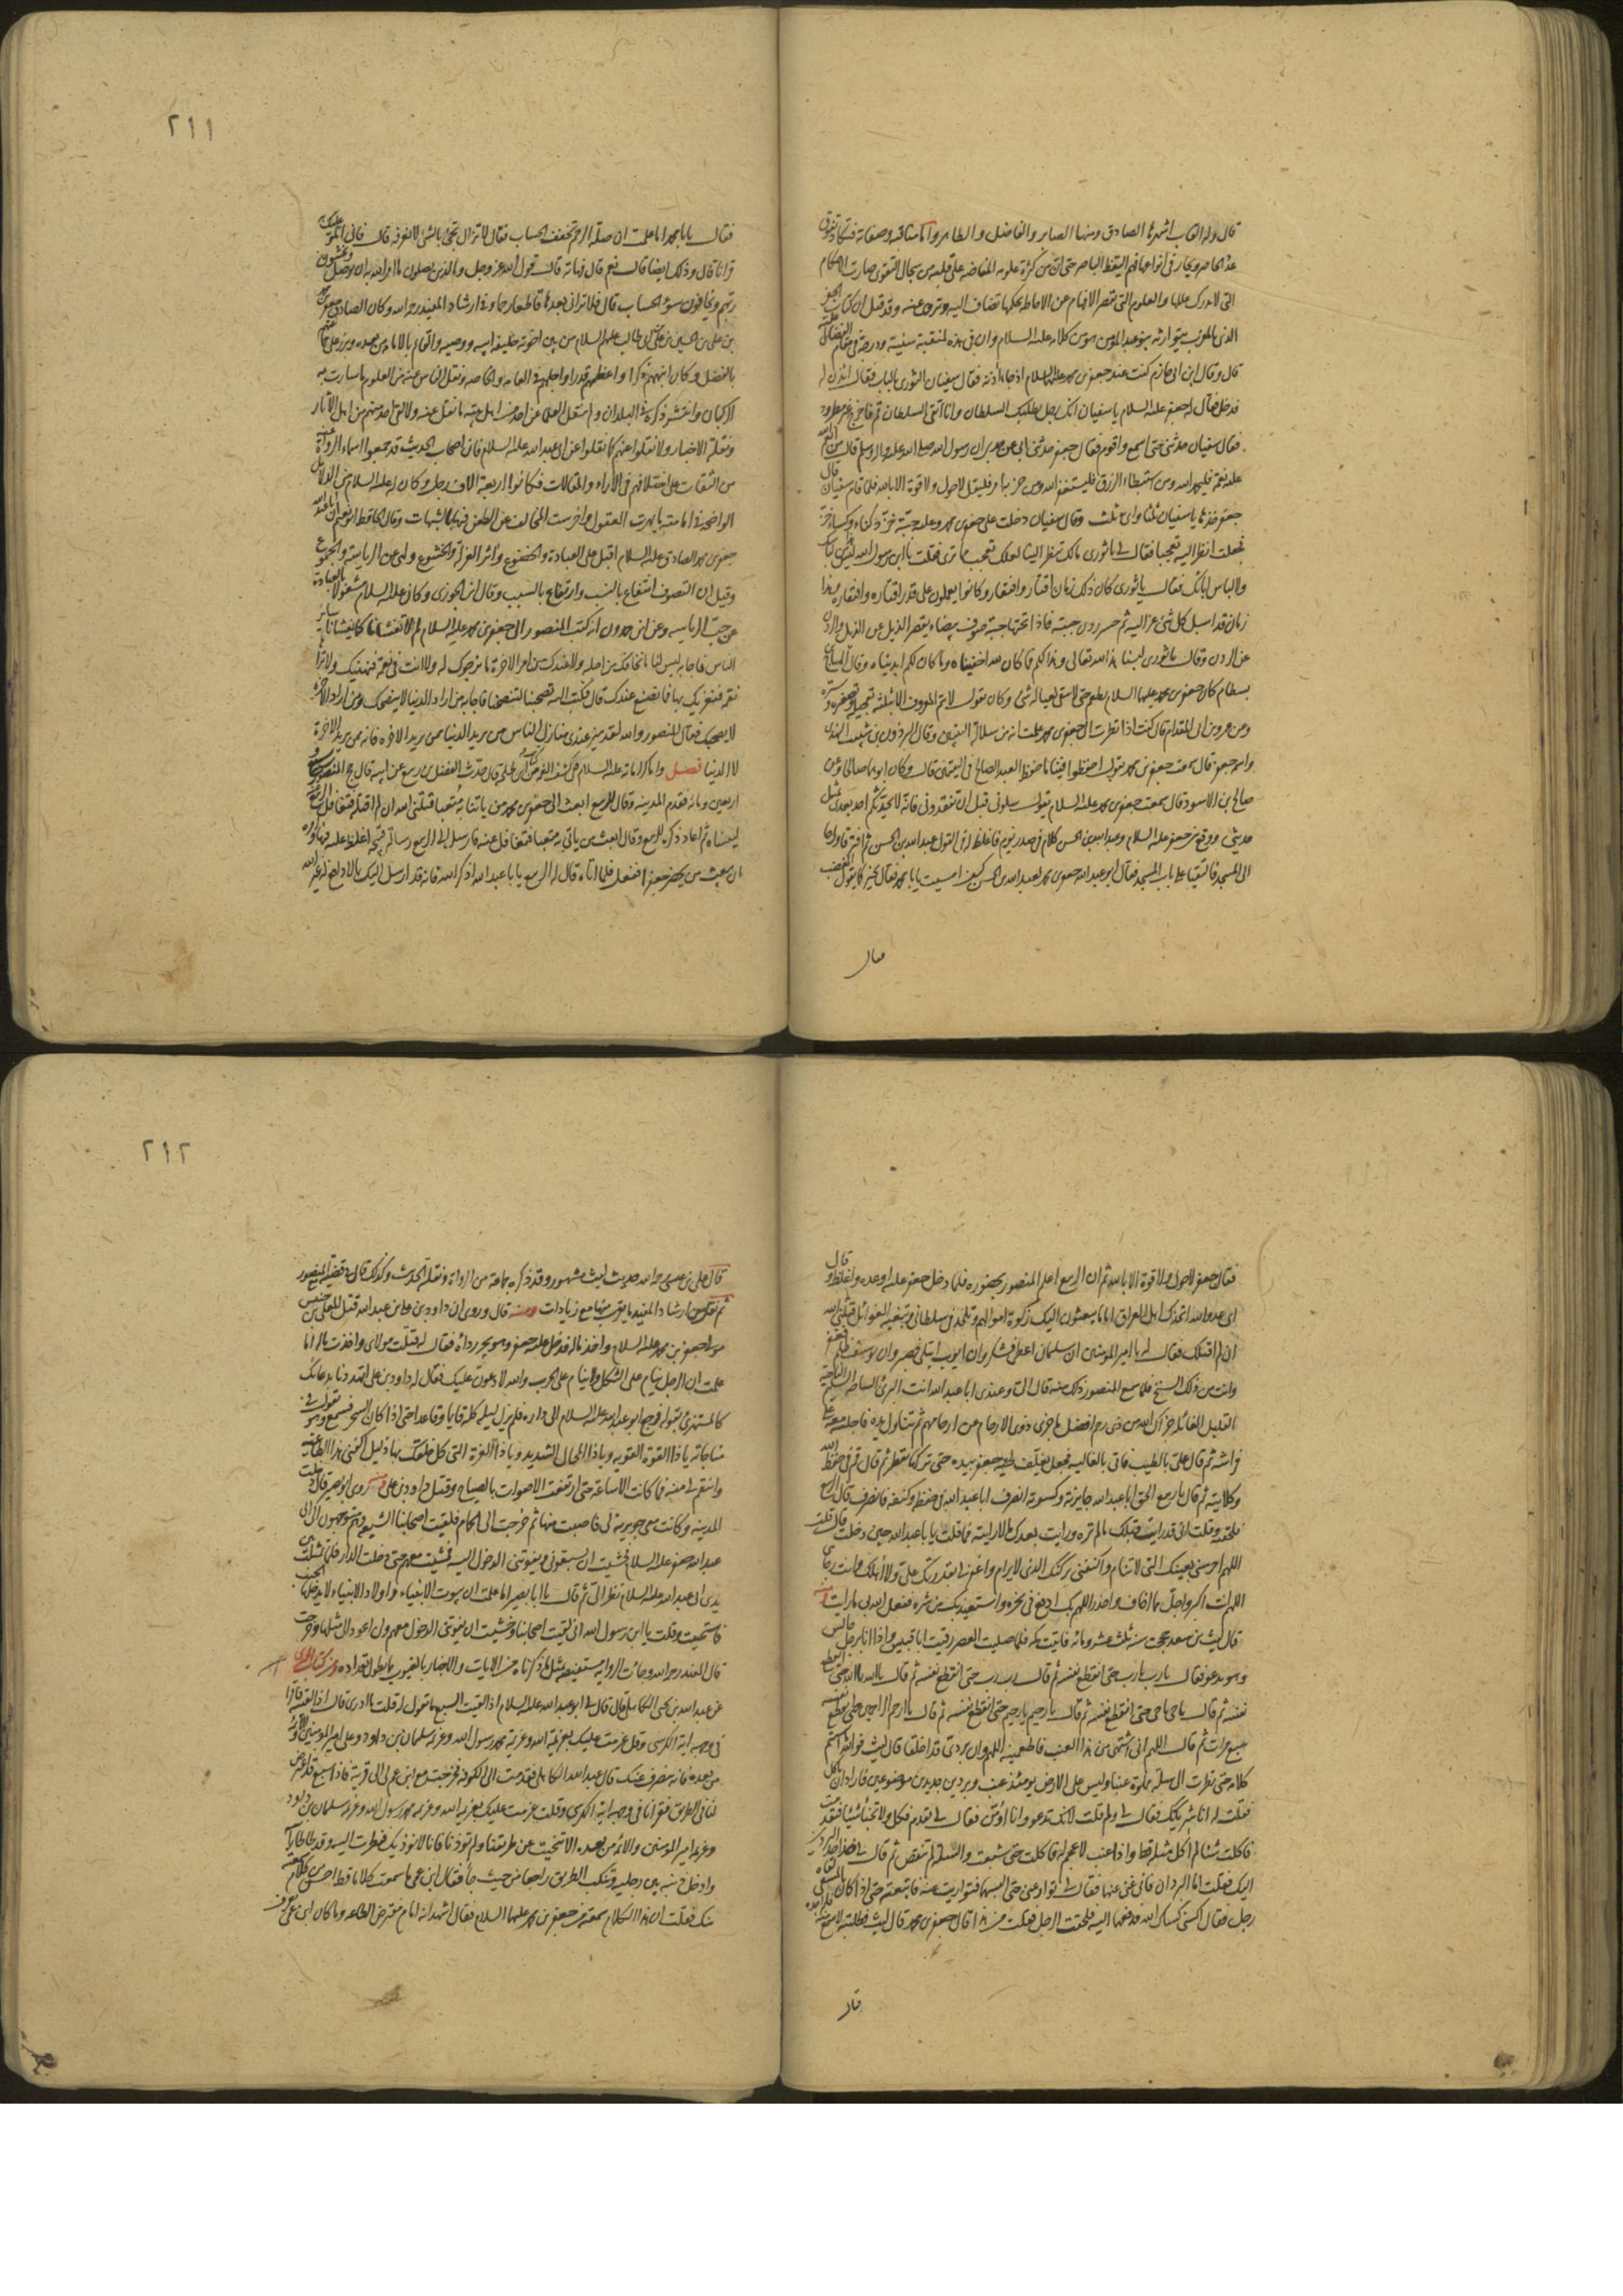 قال وله القاب اشهرها الصادق ومنها الصابر والفاضل والطاهر واما مناقبه وصفاته فتكاد تفوق
عد الحاصر ويحار في انواعها فهم اليقظ الباصر حتى ان من كثرة علومه المفاضة على قلبه من سجال التقوى صارت الاحكام
التي لا تدرك عللها والعلوم التي تقصر الافهام عن الاحاطة بحكمها تضاف اليه وتروى عنه وقد قيل ان كتاب الجفر
الذي بالمغرب يتوارثه بنو عبد المؤمن هو من كلامه عليه السلام وان في هذه لمنقبة سنية ودرجة في مقام الفضائل علية
قال وقال ابن ابي حازم كنت عند جعفر بن محمد عليهما السلام اذ جاء اذنه فقال سفيان الثوري بالباب فقال ائذن له
فدخل فقال له جعفر عليه السلام يا سفيان انك رجل يطلبك السلطان وانا اتقي السلطان قم فاخرج غير مطرود
فقال سفيان حدثني حتى اسمع واقوم فقال جعفر حدثني ابي عن جدي ان رسول الله صلى الله عليه واله وسلم قال من انعم الله
عليه نعمة فليحمد الله ومن استبطاء الرزق فليستغفر الله ومن حزنه امر فليقل لا حول ولا قوة الا بالله فلما قام سفيان قال
جعفر خذها يا سفيان ثلثا واي ثلث وقال سفيان دخلت على جعفر بن محمد وعليه جبة خز دكناء وكساء خز
فجعلت انظر اليه تعجبا فقال لي يا ثوري مالك تنظر الينا لعلك تعجب مما ترى فقلت يا ابن رسول الله ليس هذا من لباسك
ولا لباس ابائك فقال يا ثوري كان ذلك زمان اقتار وافتقار وكانوا يعملون على قدر اقتاره وافتقاره وهذا
زمان قد اسبل كل شئ عزاليه ثم حسر ردن جبته فاذا تحتها جبة صوف بيضاء يقصر الذيل عن الذيل والردن
عن الردن وقال يا ثوري لبسنا هذا لله تعالى وهذا لكم فما كان لله اخفيناه وما كان لكم ابديناه وقال الهياج بن
بسطام كان جعفر بن محمد عليهما السلام يطعم حتى لا يبقى لعياله شئ وكان يقول لا يتم المعروف الا بثلثة تعجيله وتصغيره وستره
وعن عمرو بن ابي المقدام قال كنت اذا نظرت الى جعفر بن محمد علمت انه من سلالة النبيين وقال البرذون بن شبيب النهدي
واسمه جعفر قال سمعت جعفر بن محمد يقول احفظوا فينا ما حفظ العبد الصالح في اليتيمين قال وكان ابوهما صالحا وعن
صالح بن الاسود قال سمعت جعفر بن محمد عليه السلام يقول سلوني قبل ان تفقدوني فانه لا يحدثكم احد بعدي بمثل
حديثي ووقع بين جعفر عليه السلام وعبد الله بن الحسن كلام في صدر يوم فاغلظ له في القول عبد الله بن الحسن ثم افترقا وراحا
الى المسجد فالتقيا على باب المسجد فقال ابو عبد الله جعفر بن محمد لعبد الله بن الحسن كيف امسيت يا ابا محمد فقال بخير كما يقول المغضب
فقال
٢١١
فقال يا ابا محمد اما علمت ان صلة الرحم تخفف الحساب فقال لا تزال تجئ بالشئ لا نعرفه قال فاني اتلو عليك به
قرانا قال وذلك ايضا قال نعم قال فهاته قال قول الله عز وجل والذين يصلون ما امر الله به ان يوصل ويخشون
ربهم ويخافون سوء الحساب قال فلا تراني بعدها قاطعا رحما وفي ارشاد المفيد رحمه الله وكان الصادق جعفر بن محمد
بن علي بن الحسين بن علي بن ابي طالب عليهم السلام من بين اخوته خليفة ابيه ووصيه والقائم بالامامة من بعده وبرز على جماعتهم
بالفضل وكان انبههم ذكرا واعظمهم قدرا واجلهم في العامة والخاصة ونقل الناس عنه من العلوم ما سارت به
الركبان وانتشر ذكره في البلدان ولم ينقل العلماء عن احد من اهل بيته ما نقل عنه ولا لقي احد منهم من اهل الاثار
ونقلة الاخبار ولا نقلوا عنهم كما نقلوا عن ابي عبد الله عليه السلام فان اصحاب الحديث قد جمعوا اسماء الرواة عنه
من الثقات على اختلافهم في الاراء والمقالات فكانوا اربعة الاف رجل وكان له عليه السلام من الدلائل
الواضحة في امامته ما بهرت العقول واخرست المخالف عن الطعن فيها بالشبهات وقال الحافظ ابو نعيم ان ابا عبد الله
جعفر بن محمد الصادق عليه السلام اقبل على العبادة والخضوع واثر العزلة والخشوع ولهى عن الرياسة والجموع
وقيل ان التصوف انتفاع بالنسب وارتفاع بالسبب وقال ابن الجوزي وكان عليه السلام مشغولا بالعبادة
عن حب الرياسة وعن ابن حمدون انه كتب المنصور الى جعفر بن محمد عليه السلام لم لا تغشانا كما يغشانا سائر
الناس فاجابه ليس لنا ما نخافك من اجله ولا عندك من امر الاخرة ما نرجوك له ولا انت في نعمة فنهنيك ولا تراها
نقمة فنعزيك بها فما نصنع عندك قال فكتب اليه تصحبنا لتنصحنا فاجابه من اراد الدنيا لا ينصحك ومن اراد الاخرة
لا يصحبك فقال المنصور والله لقد ميز عندي منازل الناس من يريد الدنيا ممن يريد الاخرة فانه ممن يريد الاخرة
لا الدنيا فصل واما كراماته عليه السلام
اربعين ومائة فقدم المدينة وقال للربيع ابعث الى جعفر بن محمد من ياتنا به متعبا قتلني الله ان لم اقتله فتغافل الربيع عنه
لينساه ثم اعاد ذكره للربيع وقال ابعث من ياتي به متعبا فتغافل عنه فارسل الى الربيع رسالة قبيحة اغلظ عليه فيها وامره
ان يبعث من يحضر جعفرا ففعل فلما اتاه قال له الربيع يا ابا عبد الله اذكر الله فانه قد ارسل اليك بما لا دافع له غير الله
فقال جعفر لا حول ولا قوة الا بالله ثم ان الربيع اعلم المنصور بحضوره فلما دخل جعفر عليه اوعده واغلظ وقال
اي عدو الله اتخذك اهل العراق اماما يبعثون اليك زكوة اموالهم وتلحد في سلطاني وتبغيه الغوائل قتلني الله
ان لم اقتلك فقال له يا امير المؤمنين ان سليمان اعطي فشكر وان ايوب ابتلي فصبر وان يوسف ظلم فغفر
وانت من ذلك السنخ فلما سمع المنصور ذلك منه قال الي وعندي ابا عبد الله انت البرئ الساحة السليم الناحية
القليل الغائلة جزاك الله من ذي رحم افضل ما جزى ذوي الارحام عن ارحامهم ثم تناول يده فاجلسه معه على
فراشه ثم قال علي بالطيب فاتي بالغالية فجعل يغلف لحية جعفر بيده حتى تركها تقطر ثم قال قم في حفظ الله
وكلاءته ثم قال يا ربيع الحق ابا عبد الله جايزته وكسوته انصرف ابا عبد الله في حفظه وكنفه فانصرف قال الربيع
فلحقته وقلت اني قد رايت قبلك ما لم تره ورايت بعدك ما لا رايته فما قلت يا ابا عبد الله حين دخلت قال قلت
اللهم احرسني بعينك التي لا تنام واكنفني بركنك الذي لا يرام واغفر لي بقدرتك علي ولا اهلك وانت رجائي
اللهم انت اكبر واجل مما اخاف واحذر اللهم بك ادفع في نحره واستعيذ بك من شره ففعل الله بي ما رايت ومنه
قال ليث بن سعد حججت سنة ثلث عشر ومائة فاتيت مكة فلما صليت العصر رقيت ابا قبيس واذا انا برجل جالس
وهو يدعو فقال يا رب يا رب حتى انقطع نفسه ثم قال رب رب حتى انقطع نفسه ثم قال يا الله يا الله حتى انقطع
نفسه ثم قال يا حي يا حي حتى انقطع نفسه ثم قال يا رحيم يا رحيم حتى انقطع نفسه ثم قال يا ارحم الراحمين حتى انقطع نفسه
سبع مرات ثم قال اللهم اني اشتهي من هذا العنب فاطعمنيه اللهم وان بردتي قد اخلقا قال ليث فوالله ما استتم
كلامه حتى نظرت الى سلة مملوة عنبا وليس على الارض يومئذ عنب وبردين جديدين موضوعين فاراد ان ياكل
فقلت له انا شريكك فقال لي ولم قلت لانك تدعو وانا اؤمن فقال لي تقدم فكل ولا تخبأ شيئا فتقدمت
فاكلت شيئا لم اكل مثله قط واذا عنب لا عجم له فاكلت حتى شبعت والسلة لم تنقص ثم قال لي خذ احد البردين
اليك فقلت اما البردان فاني غني عنهما فقال لي توار عني حتى البسهما فتواريت عنه فاتبعته حتى اذا كان بالمسعى لقاه
رجل فقال اكسني كساك الله فدفعهما اليه فلحقت الرجل فقلت من هذا قال جعفر بن محمد قال ليث فطلبته لاسمع منه فلم اجده
قال
٢١٢
قال علي بن عيسى رحمه الله حديث ليث مشهور وقد ذكره جماعة من الرواة ونقلة الحديث وكذلك قال في قضية الربيع والمنصور
ثم نقل من ارشاد المفيد ما يقرب منها مع زيادات ومنه قال وروى ان داود بن علي بن عبد الله قتل المعلى بن خنيس
مولى جعفر بن محمد عليه السلام واخذ ماله فدخل عليه جعفر وهو يجر رداءه فقال له قتلت مولاي واخذت ماله اما
علمت ان الرجل ينام على الثكل ولا ينام على الحرب والله لادعون عليك فقال له داود بن علي اتهددنا بدعائك
كالمستهزئ بقوله فرجع ابو عبد الله عليه السلام الى داره فلم يزل ليله كله قايما وقاعدا حتى اذا كان السحر فسمع وهو يقول في
مناجاته يا ذا القوة القوية ويا ذا المحال الشديد ويا ذا العزة التي كل خلقك بها ذليل اكفني هذا الطاغية
وانتقم لي منه فما كانت الا ساعة حتى ارتفعت الاصوات بالصياح وقتل داود بن علي ومنه روى ابو بصير قال دخلت
المدينة وكانت معي جويرية لي فاصبت منها ثم خرجت الى الحمام فلقيت اصحابنا الشيعة وهم متوجهون الى ابي
عبد الله جعفر عليه السلام فخشيت ان يسبقوني ويفوتني الدخول اليه فمشيت معهم حتى دخلت الدار فلما مثلت بين
يدي ابي عبد الله عليه السلام نظر الي ثم قال يا ابا بصير اما علمت ان بيوت الانبياء واولاد الانبياء لا يدخلها الجنب
فاستحييت وقلت يا ابن رسول الله اني لقيت اصحابنا وخشيت ان يفوتني الدخول معهم ولن اعود الى مثلها وخرجت
قال المفيد رحمه الله وجاءت الرواية مستفيضة بمثل ما ذكرناه من الايات والاخبار بالغيوب مما يطول تعداده
عن عبد الله بن يحيى الكاهلي قال قال لي ابو عبد الله عليه السلام اذا لقيت السبع ما تقول له قلت ما ادري قال اذا لقيته فاقرأ
في وجهه اية الكرسي وقل عزمت عليك بعزيمة الله وعزيمة محمد رسول الله وعزيمة سليمان بن داود وعلي امير المؤمنين والائمة
من بعده فانه ينصرف عنك قال عبد الله الكاهلي فقدمت الى الكوفة فخرجت مع ابن عم لي الى قرية فاذا سبع قد اعترض
لنا في الطريق فقرات في وجهه اية الكرسي وقلت عزمت عليك بعزيمة الله وعزيمة محمد رسول الله وعزيمة سليمان بن داود
وعزيمة امير المؤمنين والائمة من بعده الا تنحيت عن طريقنا ولم تؤذنا فانا لا نؤذيك فنظرت اليه وقد طأطأ راسه
وادخل ذنبه بين رجليه وتنكب الطريق راجعا من حيث جاء فقال ابن عمي ما سمعت كلاما قط احسن من كلام سمعته
منك فقلت ان هذا الكلام سمعته من جعفر بن محمد عليهما السلام فقال اشهد انه امام مفترض الطاعة وما كان ابن عمي يعرف